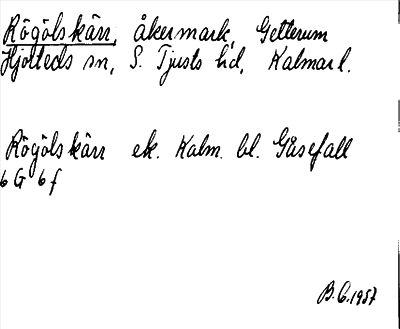 Rögölskärr, åkermark, Getterum
Hjorteds sn, S. Tjusts hd, Kalmar l.
Rögölskärr ek. Kalm. bl. Gåsefall
6 G 6 f
B.G. 1957